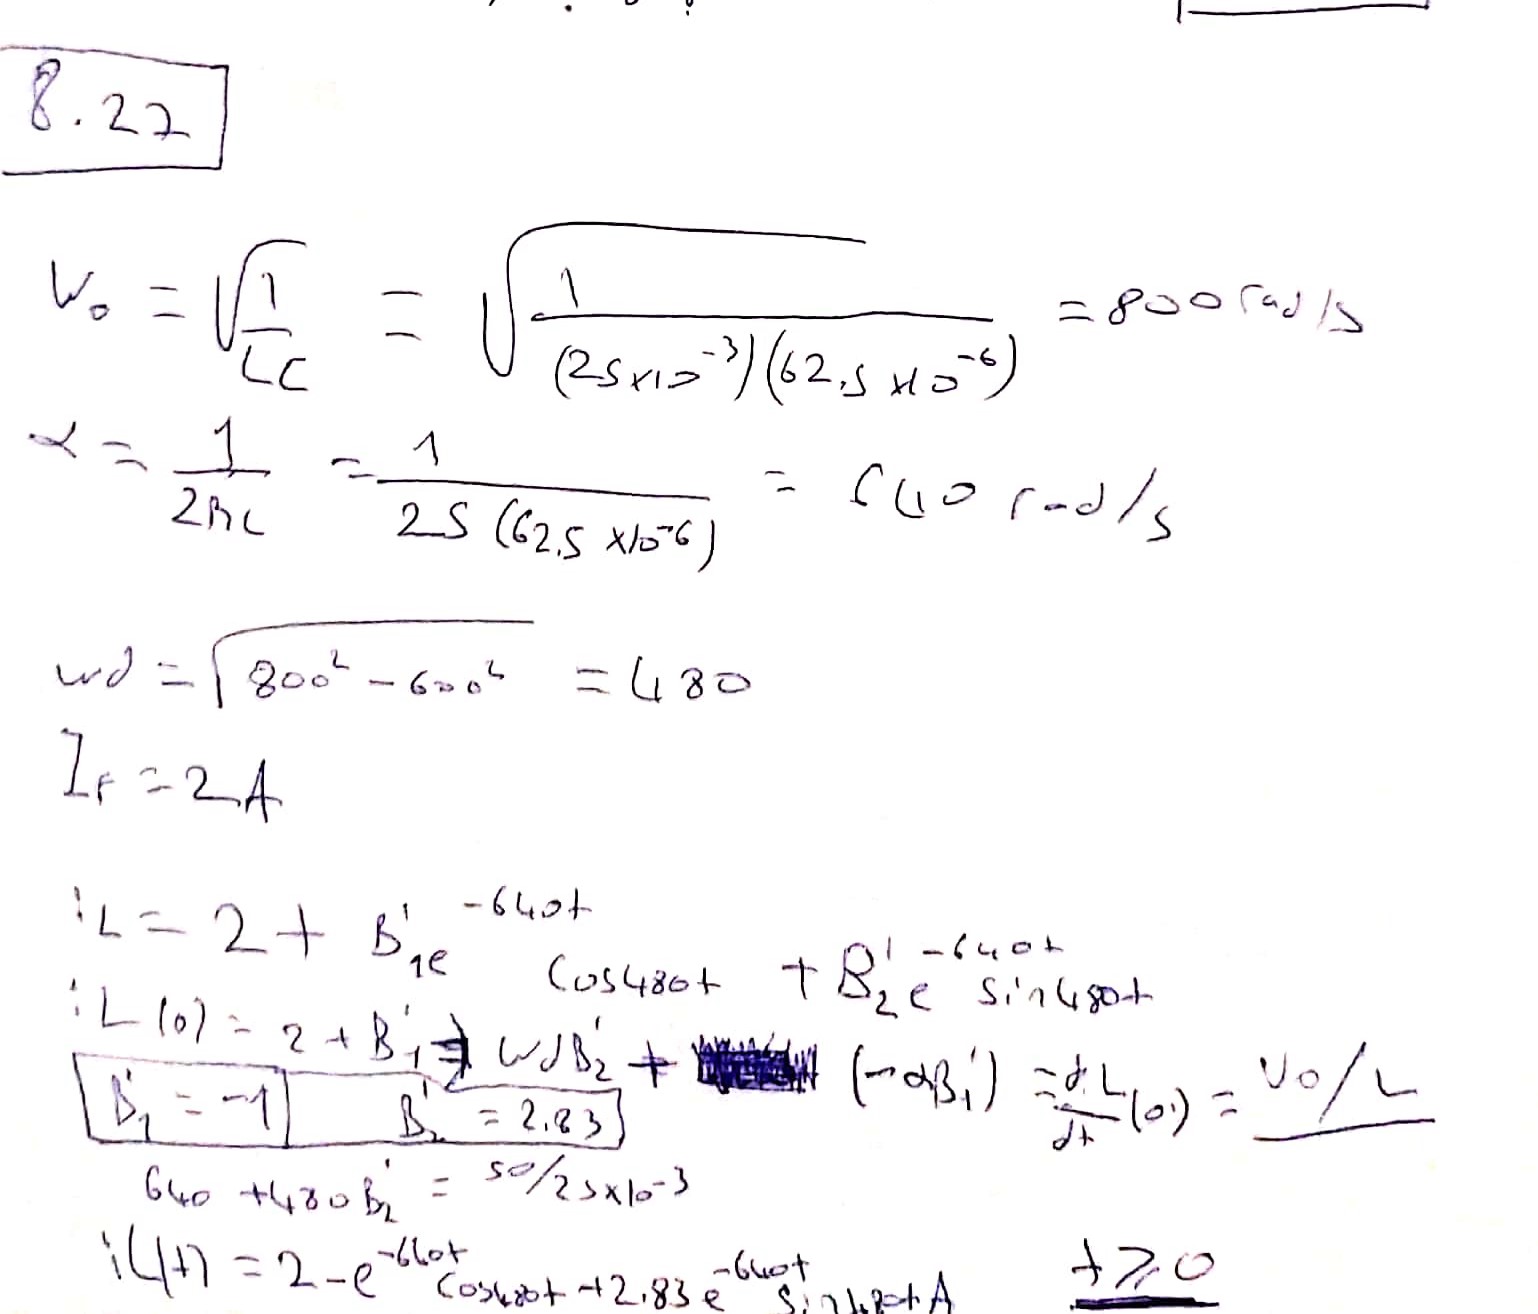 8.27
W₀ = √(1/LC) = √(1/((25x10⁻³)(62,5x10⁻⁶))) = 800 rad/s
α = 1/2RC = 1/(25(62,5x10⁻⁶)) = 640 rad/s
wd = √(800² - 600²) = 480
If = 2A
iL = 2 + B'₁e^(-640t) Cos480t + B'₂e^(-640t) Sin480t
iL(0) = 2 + B'₁ ⇒ wdB'₂ + (-αB'₁) = diL/dt (0+) = V₀/L
B'₁ = -1 B'₂ = 2.83
640 + 480B'₂ = 50/25x10-3
iL(t) = 2 - e^(-640t) Cos480t + 2.83e^(-640t) Sin480t A t ≥ 0